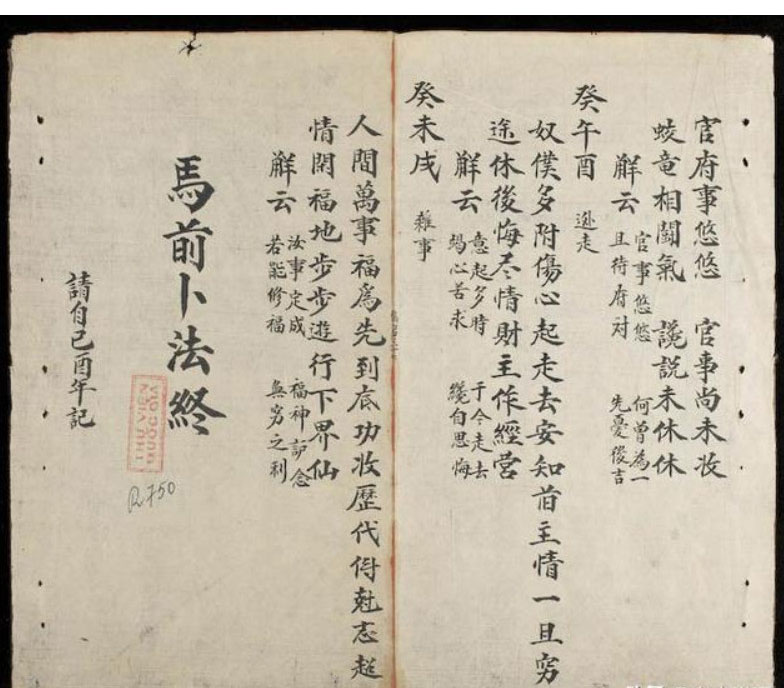 官府事悠悠 官事尚未收
蛟竜相闘氣 讒説未休休
解云 官事悠悠 何曾為一
且待府对 先憂後吉
癸午酉 逃走
奴僕多附傷心起走去安知首主情一旦穷
途休後悔尽情財主作經营
解云 意起多時 于今走去
竭心苦求 纔自思悔
癸未戌 雜事
人間萬事福為先到底功收歷代得尅志超
情閑福地步步遊行下界仙
解云 汝事定成 福神念
若能修福 無穷之利
馬前卜法終
請自己酉年記
THƯ VIỆN
QUỐC GIA
R.750